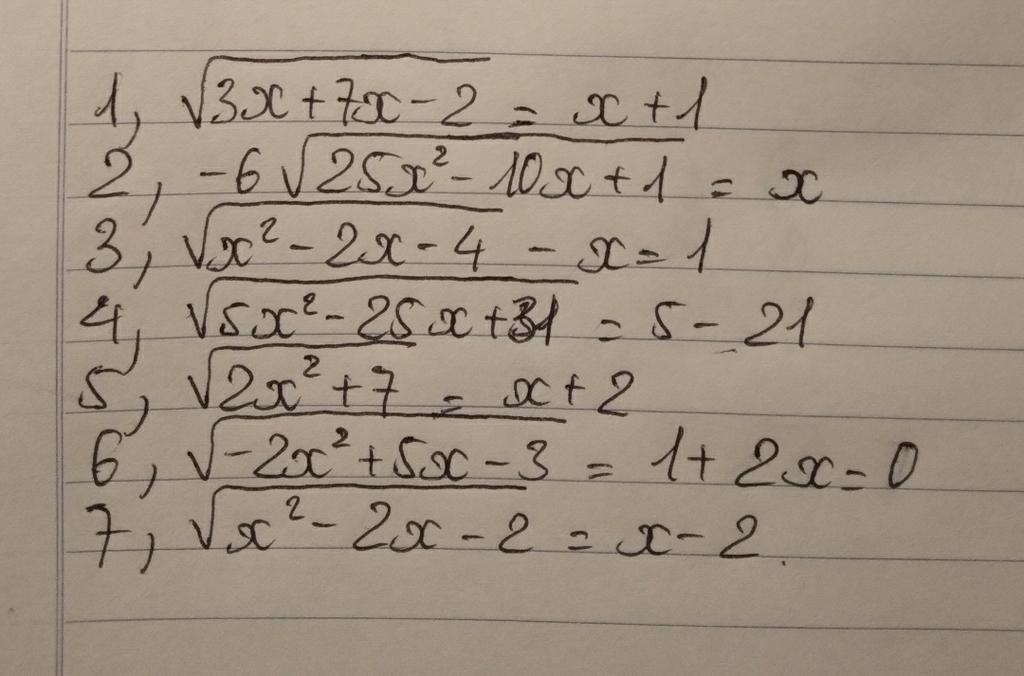 1, √3x+7x-2 = x+1
2, -6√25x²-10x+1 = x
3, √x²-2x-4 - x=1
4, √5x²-25x+31 = 5-21
5, √2x²+7 = x+2
6, √-2x²+5x-3 = 1+2x=0
7, √x²-2x-2 = x-2.